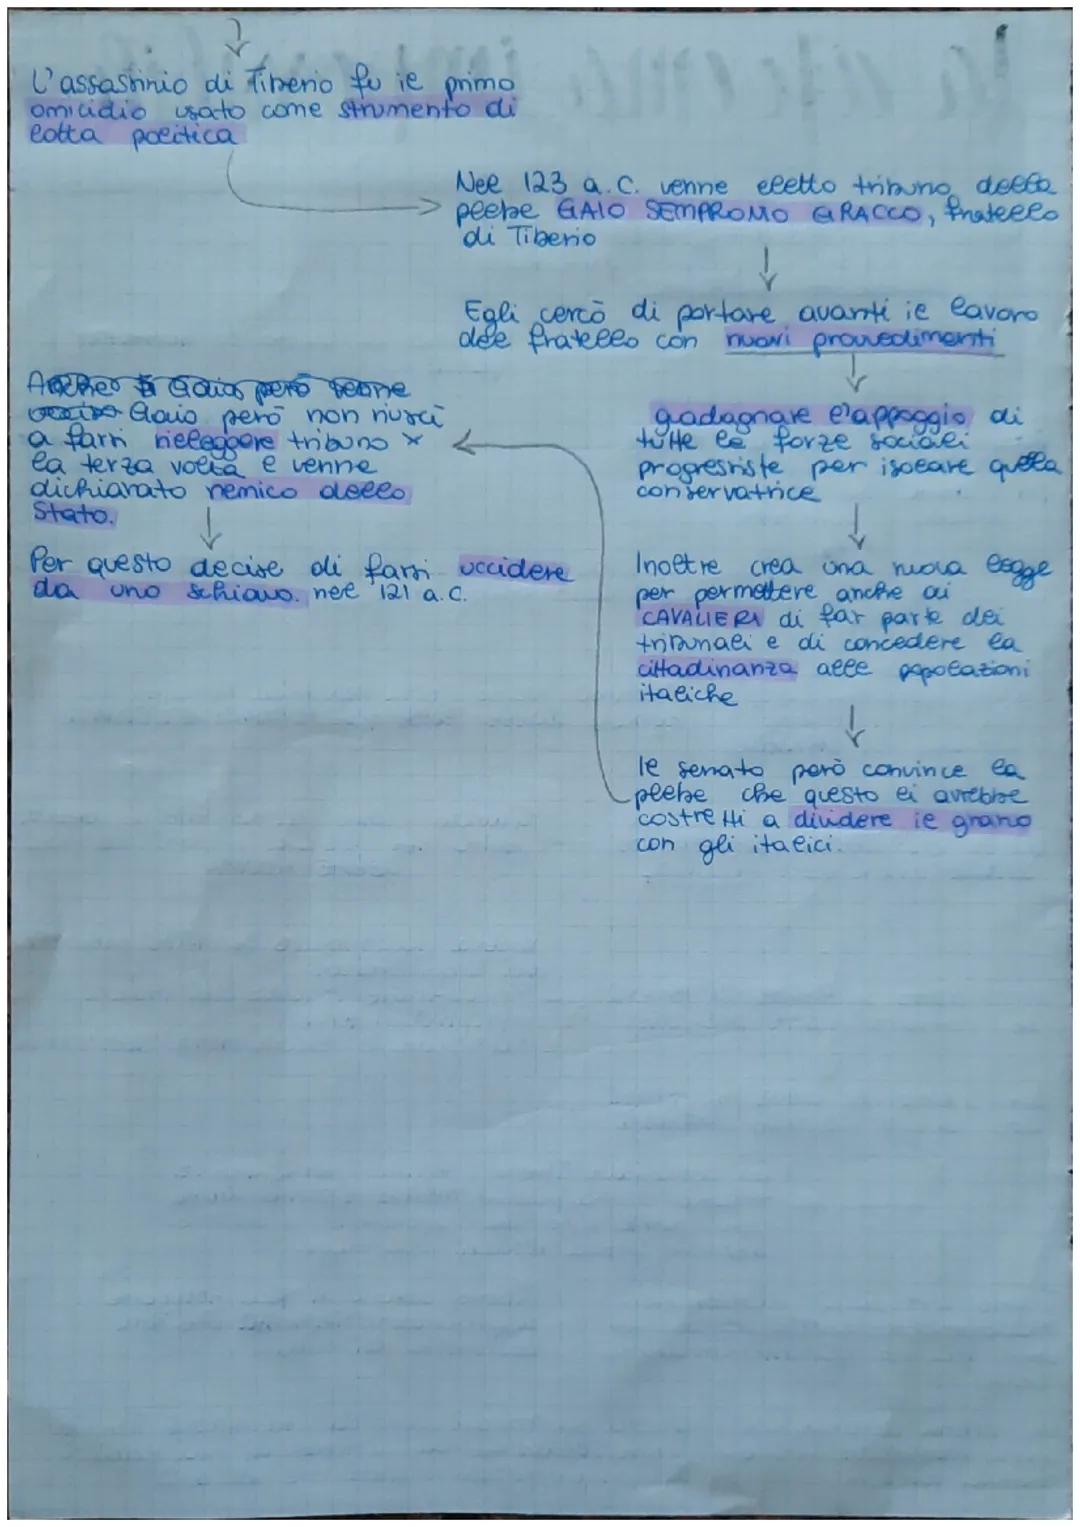 L'assassinio di Tiberio fu il primo
omicidio usato come strumento di
lotta politica
Nel 123 a.C. venne eletto tribuno della
plebe GAIO SEMPRONIO GRACCO, fratello
di Tiberio
Egli cercò di portare avanti il lavoro
del fratello con nuovi provvedimenti
guadagnare l'appoggio di
tutte le forze sociali
progressiste per isolare quella
conservatrice
Inoltre crea una nuova legge
per permettere anche ai
CAVALIERI di far parte dei
tribunali e di concedere la
cittadinanza alle popolazioni
italiche
Il senato però convince la
plebe che questo li avrebbe
costretti a dividere il grano
con gli italici.
Anche Gaio però venne
ucciso Gaio però non riuscì
a farsi rieleggere tribuno x
la terza volta e venne
dichiarato nemico dello
Stato.
Per questo decise di farsi uccidere
da uno schiavo. nel 121 a.C.